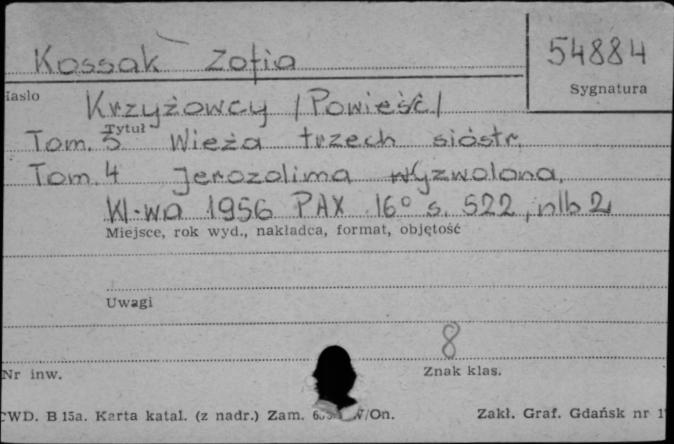 Kossak Zofia
54884
Sygnatura
Hasło
Krzyżowcy /Powieść/
Tytuł
Tom. 3 Wieża trzech sióstr.
Tom. 4 Jerozolima wyzwolona.
W-wa 1956 PAX 16° s. 522, nlb 2
Miejsce, rok wyd., nakładca, format, objętość
Uwagi
8
Nr inw.
Znak klas.
CWD. B 15a. Karta katal. (z nadr.) Zam. W/On.
Zakł. Graf. Gdańsk nr